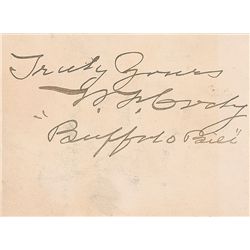 Truly Yours
W. F. Cody
"Buffalo Bill"